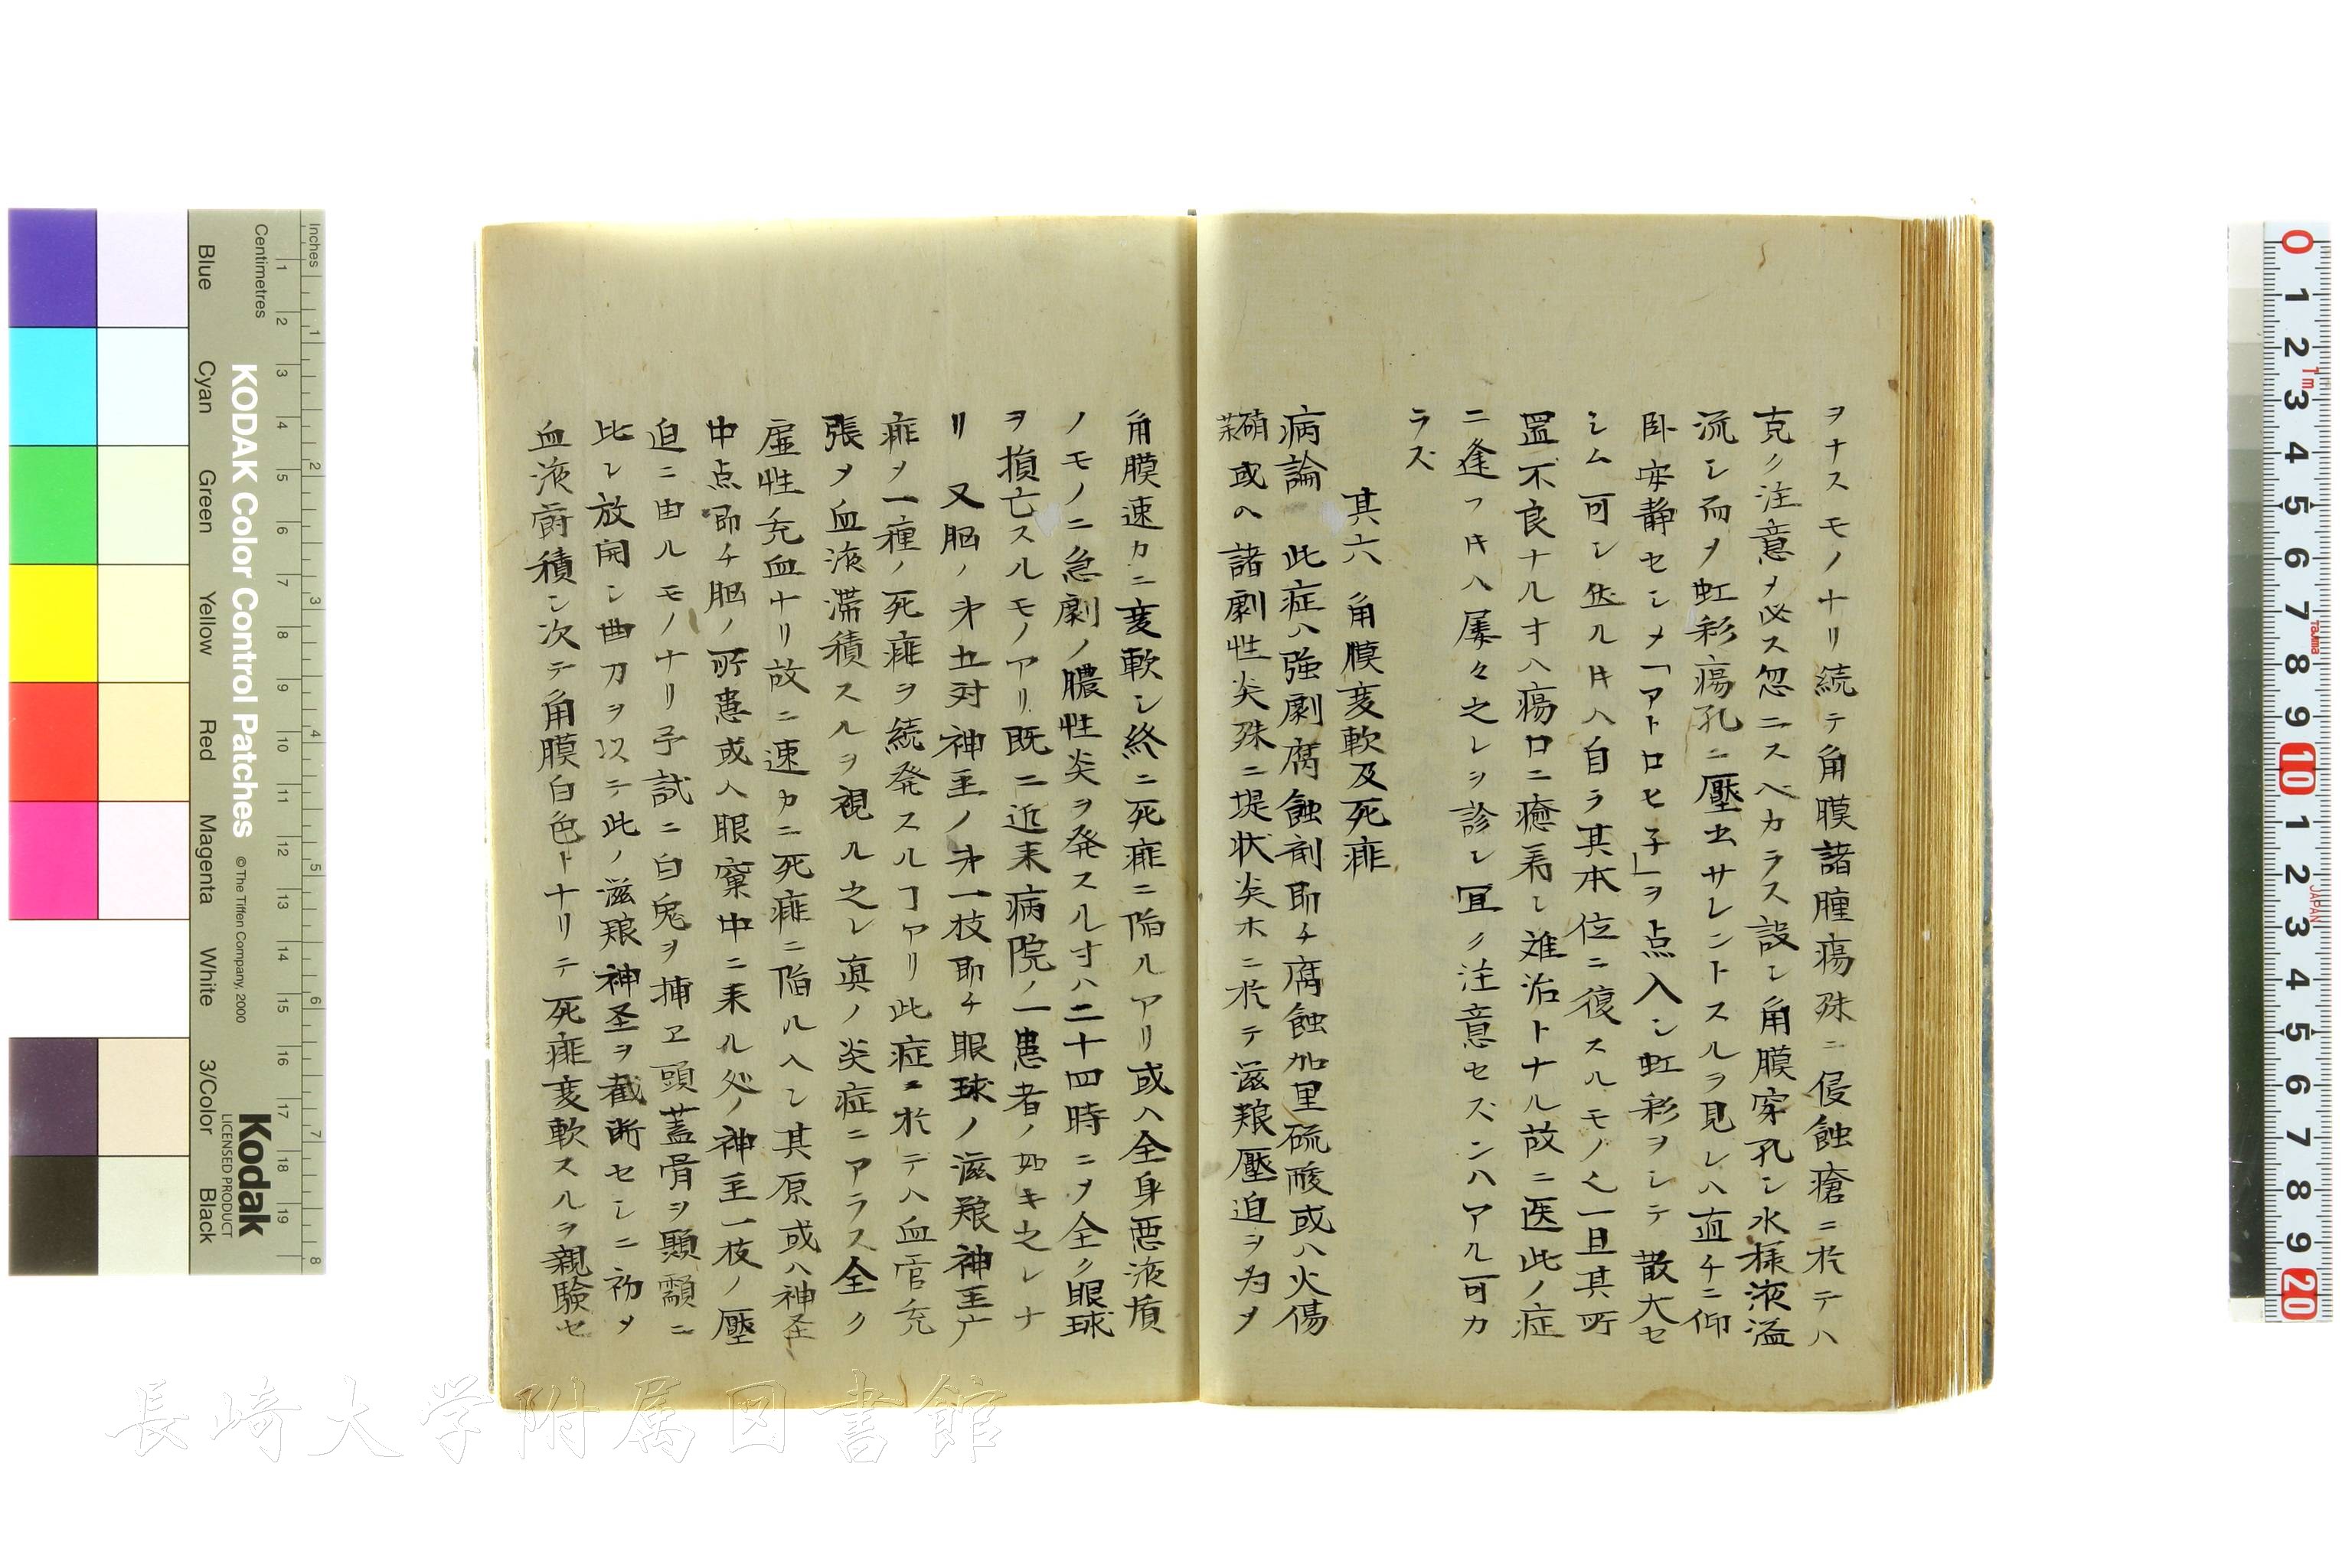 ヲナスモノナリ続テ角膜諸腫瘍殊ニ侵蝕瘡ニ於テハ
克ク注意ヲ必ス忽ニスヘカラス設シ角膜穿孔シ水様液溢
流シ而メ虹彩瘍孔ニ壓出サレントスルヲ見レハ直チニ仰
臥安静セシメ「アトロヒ子」ヲ点入シ虹彩ヲシテ散大セ
シム可シ然ル𪜈ハ自ラ其本位ニ復スルモノ也一旦其所
置不良ナル寸ハ瘍口ニ癒着シ難治トナル故ニ医此ノ症
ニ逢フ𪜈ハ屡々之レヲ診シ宜ク注意セズンハアル可カ
ラズ
其六 角膜変軟及死痱
病論 此症ハ強劇腐蝕剤即チ腐蝕加里硫酸或ハ火傷
硝或ハ諸劇性炎殊ニ堤状炎ホニ於テ滋粮壓迫ヲ為メ
角膜速カニ変軟シ終ニ死痱ニ陥ルアリ或ハ全身悪液質
ノモノニ急劇ノ膿性炎ヲ発スル寸ハ二十四時ニメ全ク眼球
ヲ損亡スルモノアリ既ニ近来病院ノ一患者ノ如キ之レナ
リ 又脳ノ㐧五対神圣ノ㐧一枝即チ眼球ノ滋粮神圣广
痱メ一種ノ死痱ヲ続発スルヿアリ此症ニ於テハ血管充
張メ血液滞積スルヲ視ル之レ真ノ炎症ニアラス全ク
虚性充血ナリ故ニ速カニ死痱ニ陥ルヘシ其原或ハ神圣
中点即チ脳ノ所患或ハ眼窠中ニ来ル処ノ神圣一枝ノ壓
迫ニ由ルモノナリ予試ニ白兎ヲ捕ヱ頭蓋骨ヲ顕顬ニ
比シ放開シ曲刀ヲ以テ此ノ滋粮神圣ヲ截断セシニ初メ
血液欝積シ次テ角膜白色トナリテ死痱変軟スルヲ親験セ
Inches
Centimetres
KODAK Color Control Patches
© The Tiffen Company, 2000
Kodak
LICENSED PRODUCT
Blue
Cyan
Green
Yellow
Red
Magenta
White
3/Color
Black
長崎大学附属図書館